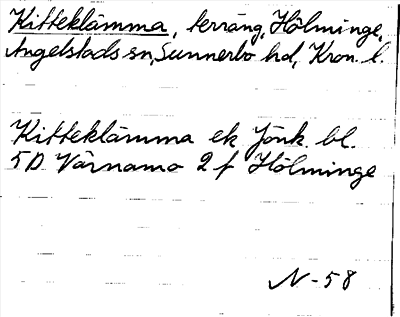 Kitteklämma, terräng, Hölminge,
Angelstads sn, Sunnerbo hd, Kron. l.
Kitteklämma ek Jönk. bl.
5D Värnamo 2 f Hölminge
N-58